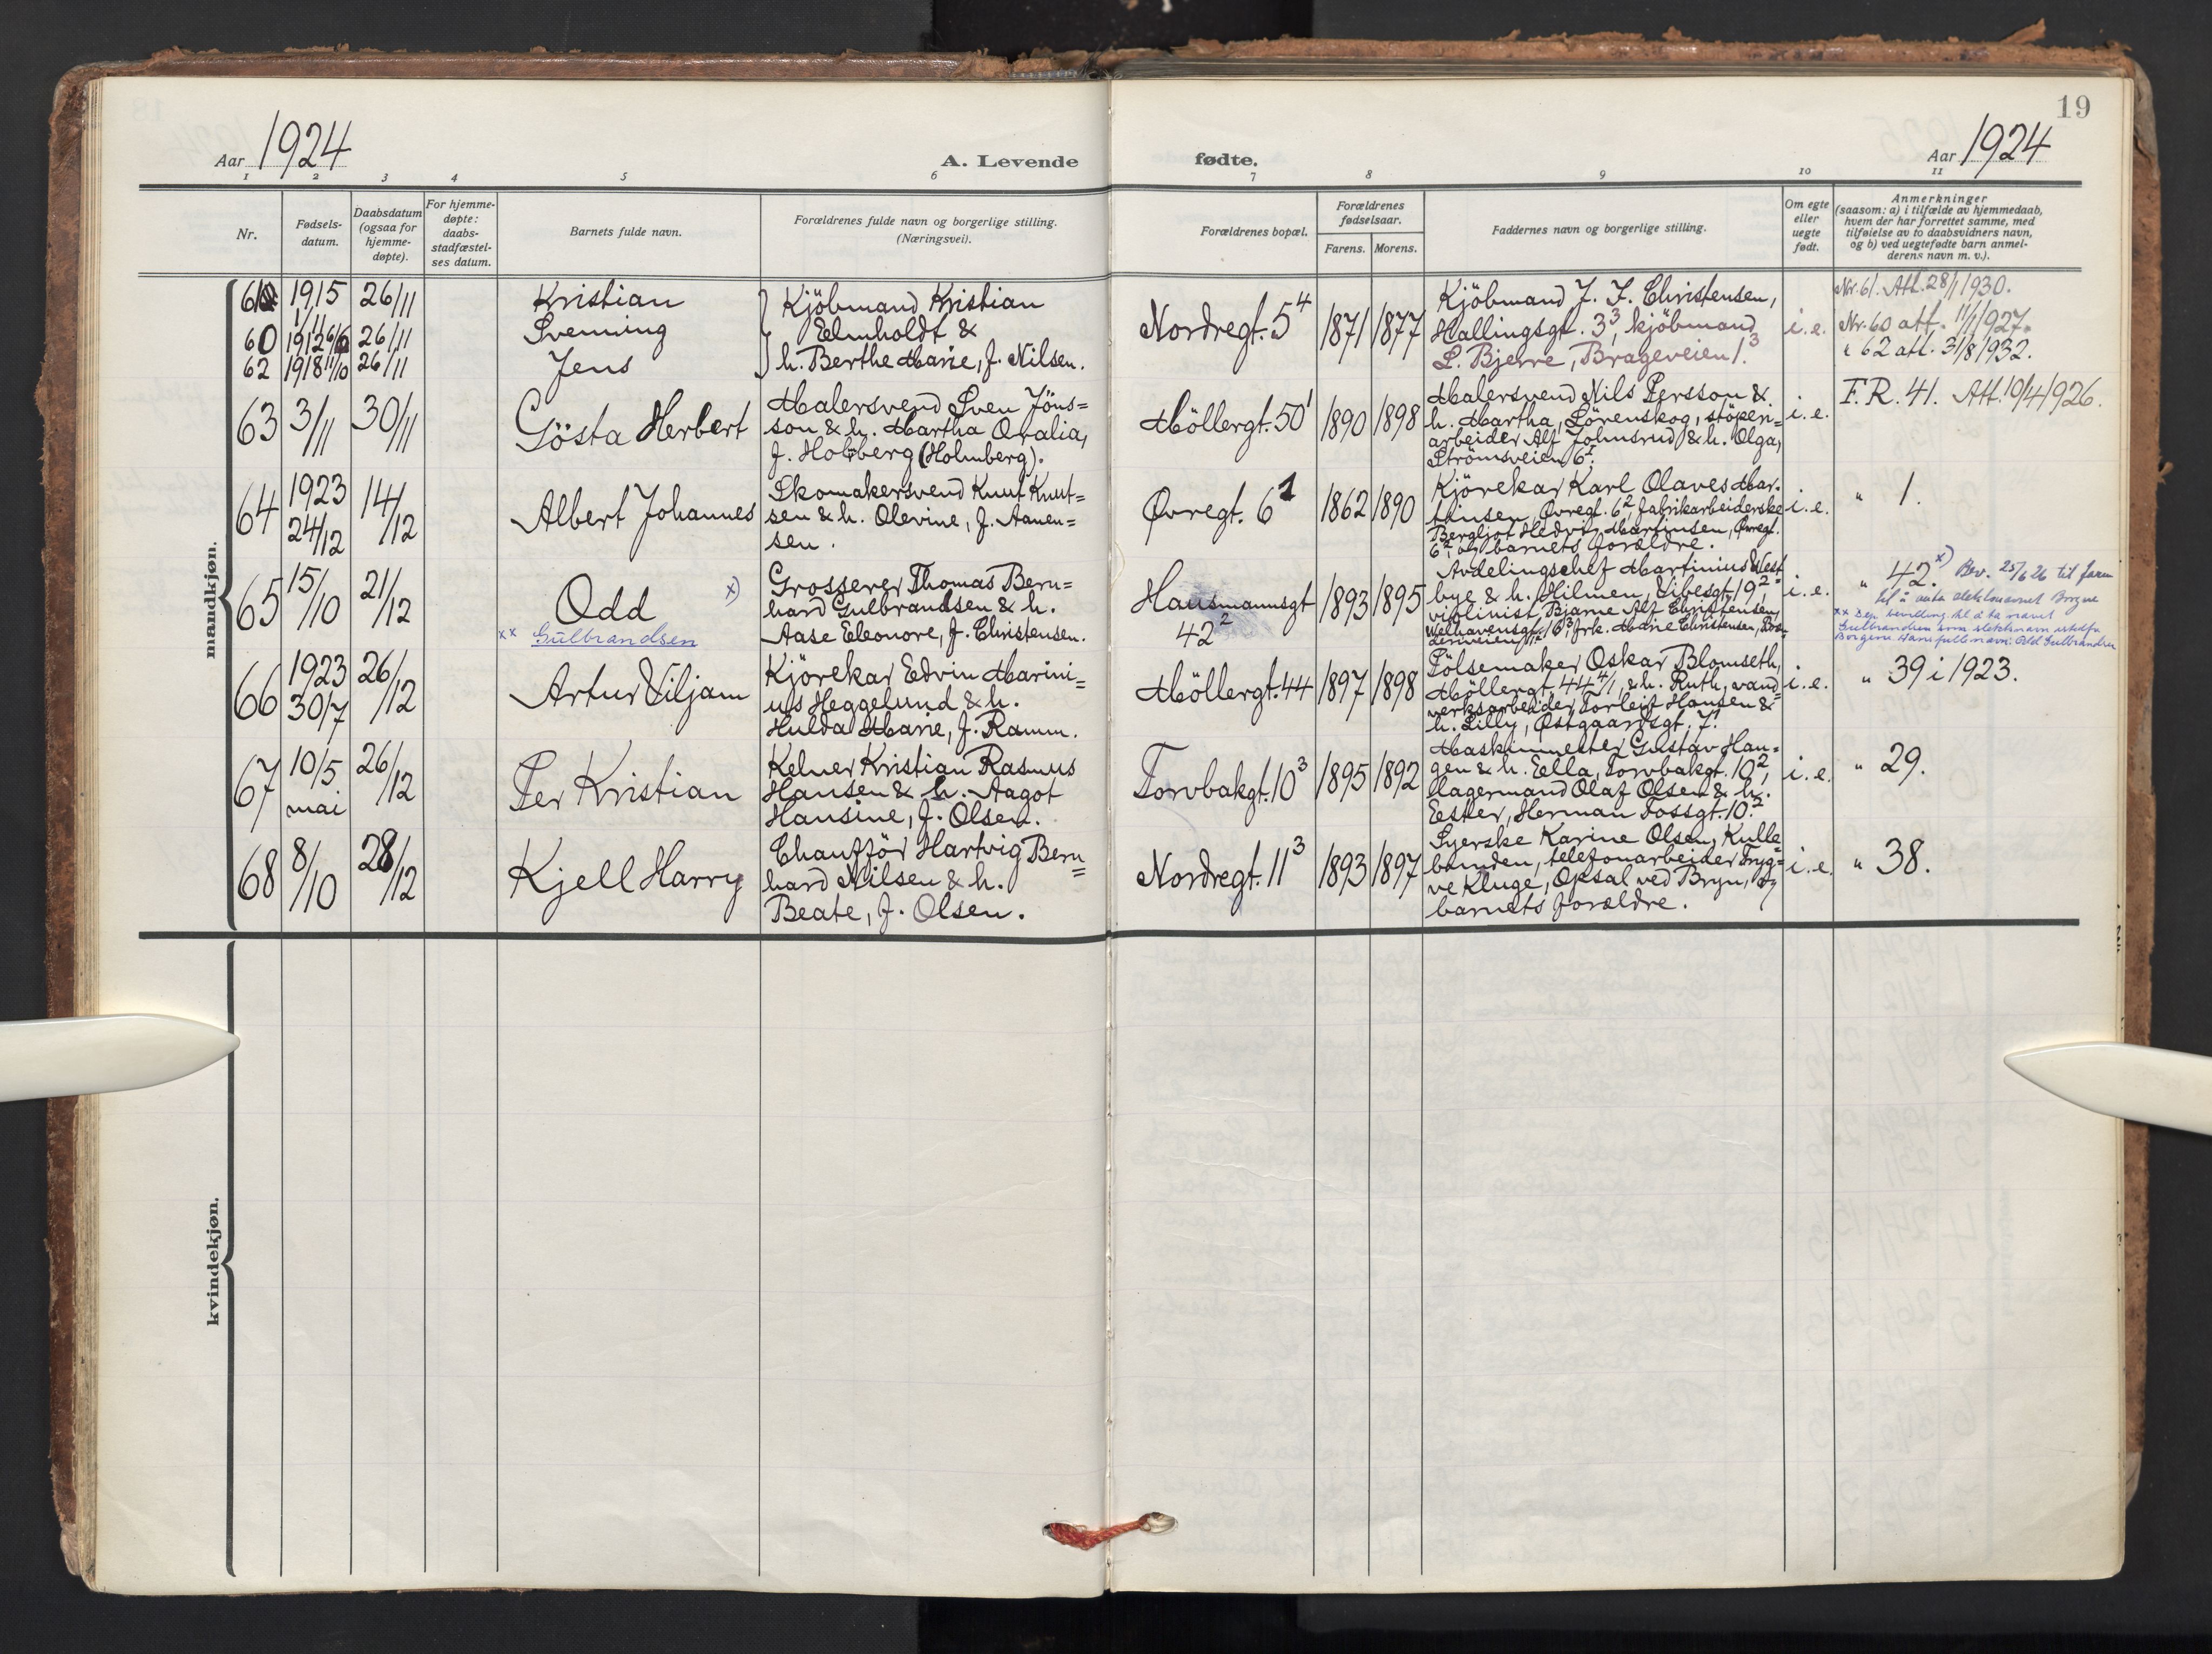 19
Aar 1924
A. Levende fødte.
Aar 1924
1 2 3 4 5 6 7 8 9 10 11
Nr.
Fødsels-
datum.
Daabsdatum
(ogsaa for
hjemme-
døpte).
For hjemme-
døpte:
daabs-
stadfæstel-
ses datum.
Barnets fulde navn.
Forældrenes fulde navn og borgerlige stilling.
(Næringsvei).
Forældrenes bopæl.
Forældrenes
fødselsaar.
Farens. Morens.
Faddernes navn og borgerlige stilling.
Om egte
eller
uegte
født.
Anmerkninger
(saasom: a) i tilfælde av hjemmedaab,
hvem der har forrettet samme, med
tilføielse av to daabsvidners navn,
og b) ved uegtefødte barn anmel-
derens navn m. v.).
mandkjøn.
61 1915 1/11 26/11
60 1912 26/11
62 1918 11/10 26/11
Kristian
Svenning
Jens
Kjöbmand Kristian
Elmholdt &
h. Berthe Marie, f. Nilsen.
Nordregt. 5⁴
1871 1877
Kjöbmand J. F. Christensen,
Hallingsgt. 3³, kjöbmand
L. Bjerre, Brageveien 1.³
i. e.
Nr. 61. Att. 28/1 1930.
Nr. 60 att. 11/1 1927.
" 62 att. 31/8 1932.
63 3/11 30/11
Gösta Herbert
Malersvend Sven Jöns=
son & h. Martha Oralia,
f. Holberg (Holmberg).
Möllergt. 50¹
1890 1898
Malersvend Nils Persson &
h. Martha, Lörenskog, stöperi=
arbeider Alf Johnsrud & h. Olga,
Strömsveien 6¹.
i. e.
F. R. 41. Att. 10/4 1926.
64 1923 24/12 14/12
Albert Johannes
Skomakersvend Knut Knut=
sen & h. Olevine, f. Aanen=
sen.
Øvregt. 6¹
1862 1890
Kjörekar Karl Olaves Mar=
tinsen, Øvregt. 6², fabrikarbeiderske
Bergljot Hedvig Martinsen, Øvregt.
6², og barnets forældre.
i. e.
" 1.
65 15/10 21/12
Odd x)
xx Gulbrandsen
Grosserer Thomas Bern=
hard Gulbrandsen & h.
Aase Eleonore, f. Christensen.
Hausmannsgt
42²
1893 1895
Avdelingschef Martinius West
bye & h. Hilmen, Vibesgt. 19²,
violinist Bjarne Alf Christensen,
Welhavensgt. 16³, frk. Marie Christensen,
i. e.
" 42. x) Bev. 25/6 26 til faren
til å anta slektsnavnet Borgne
xx Den bevilling til å ta navnet
Gulbrandsen som slektsnavn istedfor
Borgen. Hans fulle navn: Odd Gulbrandsen
66 1923 30/7 26/12
Artur Viljam
Kjörekar Edvin Marini=
us Heggelund & h.
Hulda Marie, f. Ramm.
Möllergt. 44
1897 1898
Pölsemaker Oskar Blomseth,
Möllergt. 44 4/1, & h. Ruth, vand=
verksarbeider Torleif Hansen &
h. Lilly, Østgaardsgt. 7¹.
i. e.
" 39 i 1923.
67 10/5 mai 26/12
Per Kristian
Kelner Kristian Rasmus
Hansen & h. Aagot
Hansine, f. Olsen.
Torvbakgt. 10³
1895 1892
Maskinmester Gustav Han=
gen & h. Ella, Torvbakgt. 10²,
lagermand Olaf Olsen & h.
Ester, Herman Fossgt. 10.²
i. e.
" 29.
68 8/10 28/12
Kjell Harry
Chaufför Hartvig Bern=
hard Nilsen & h.
Beate, f. Olsen.
Nordregt. 11³
1893 1897
Syerske Karine Olsen, Kulle=
bunden, telefonarbeider Tryg=
ve Kluge, Opsal ved Bryn, og
barnets forældre.
i. e.
" 38.
kvindekjøn.